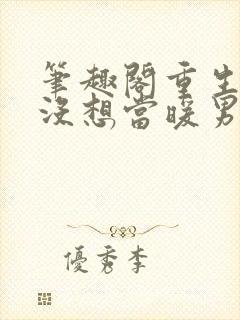 筆趣閣重生
沒想當暖男
優秀李